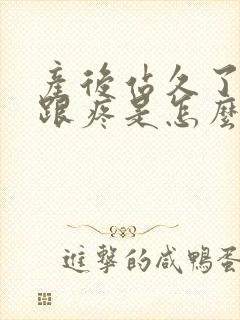 產後站久了
跟疼是怎麼
進擊的咸鴨蛋